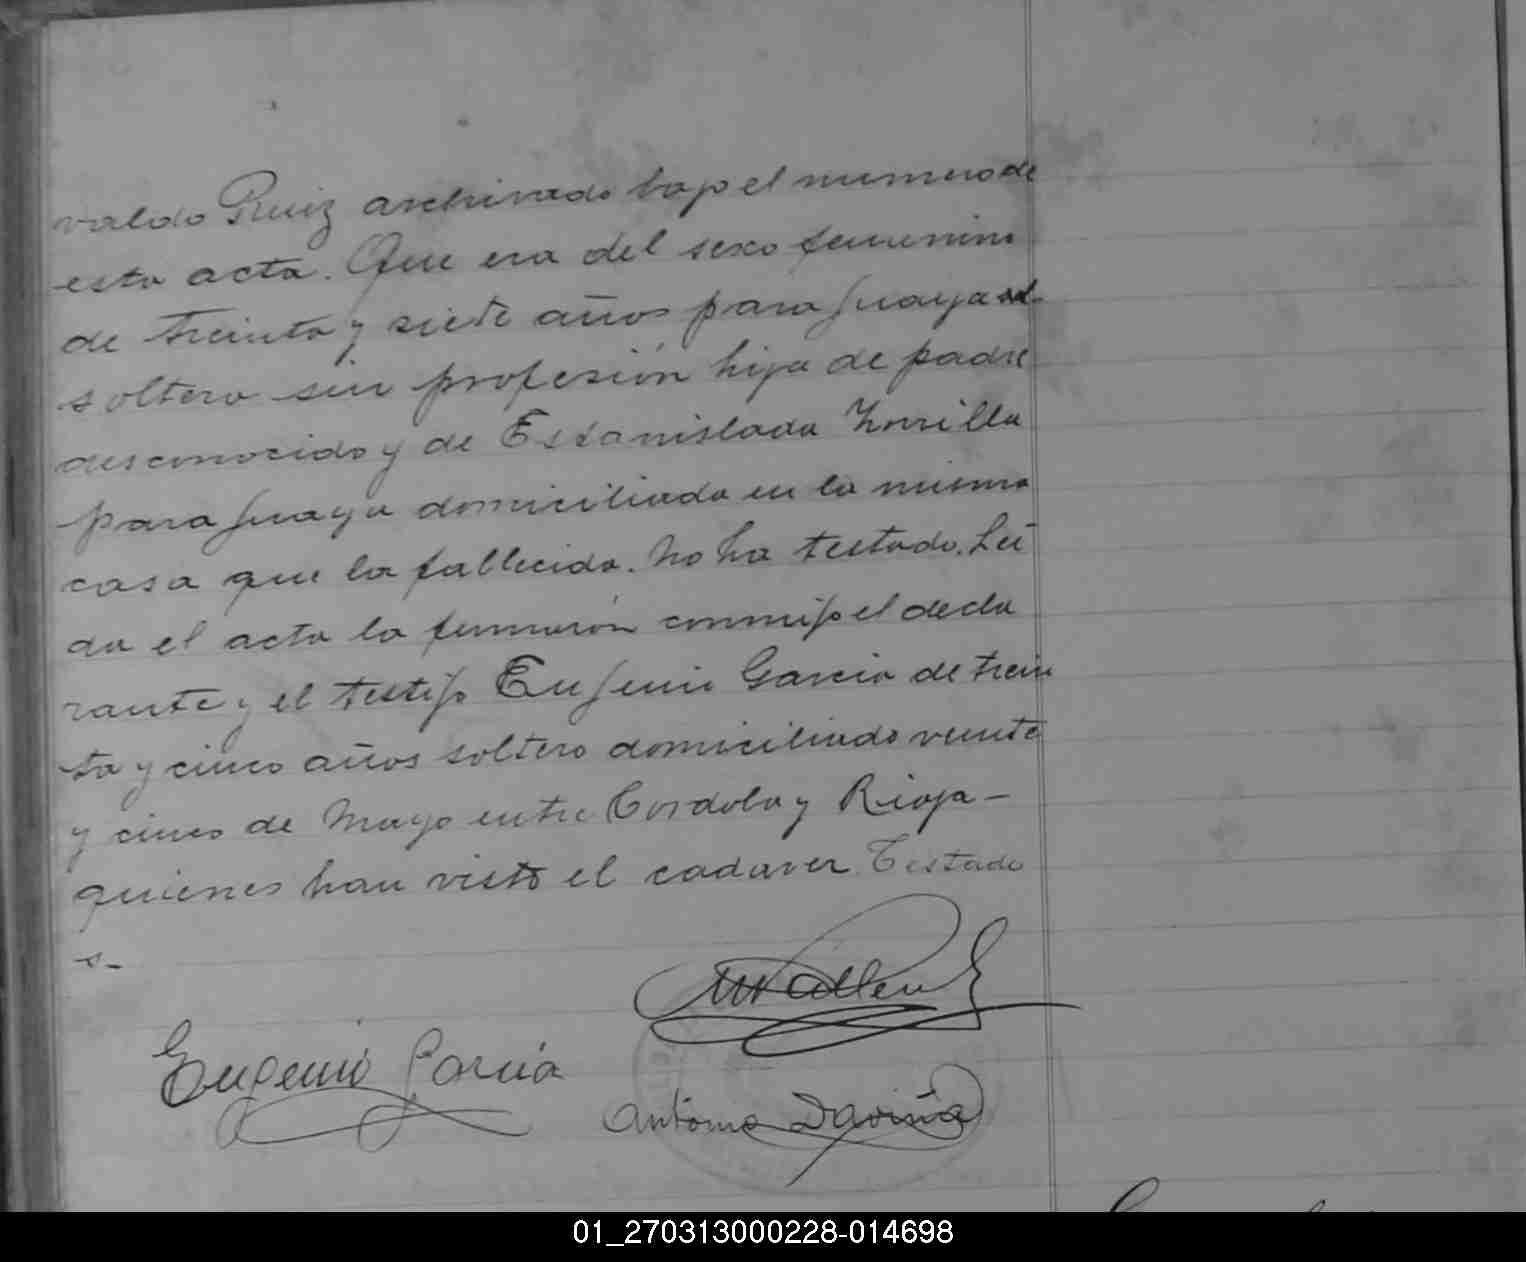 valdo Ruiz archivado bajo el numero de
esta acta. Que era del sexo femenino
de treinta y siete años paraguaya
soltera sin profesión hija de padre
desconocido y de Estanislada Zorrilla
paraguaya domiciliada en la misma
casa que la fallecida. No ha testado. Leí
da el acta la firmarón conmigo el decla
rante y el testigo Eugenio Garcia de trein
ta y cinco años soltero domiciliado veinte
y cinco de Mayo entre Cordoba y Rioja -
quienes han visto el cadaver. Testado
s-
Eugenio Garcia
Antonio Daviña
01_270313000228-014698